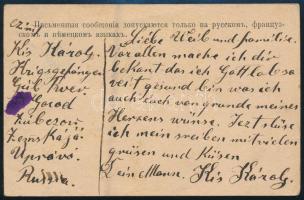 Письменныя сообщенія допускаются только на русскомъ, француз-
скомъ и нѣмецкомъ языкахъ.
Kis Károly
Krigsgefangen
Gub. Kver
Gorod
Zubcsov
Zemskájá
Upráva
Russia.
Liebe Weib und familie.
Vor allen mache ich dir
bekant das ich Gott lob so
weit gesund bin was ich
auch euch von grunde meines
Herzens wünse. Jezt slüse
ich mein sreiben mit vielen
grüsen und Küsen
Dein Mann. Kis Károly.